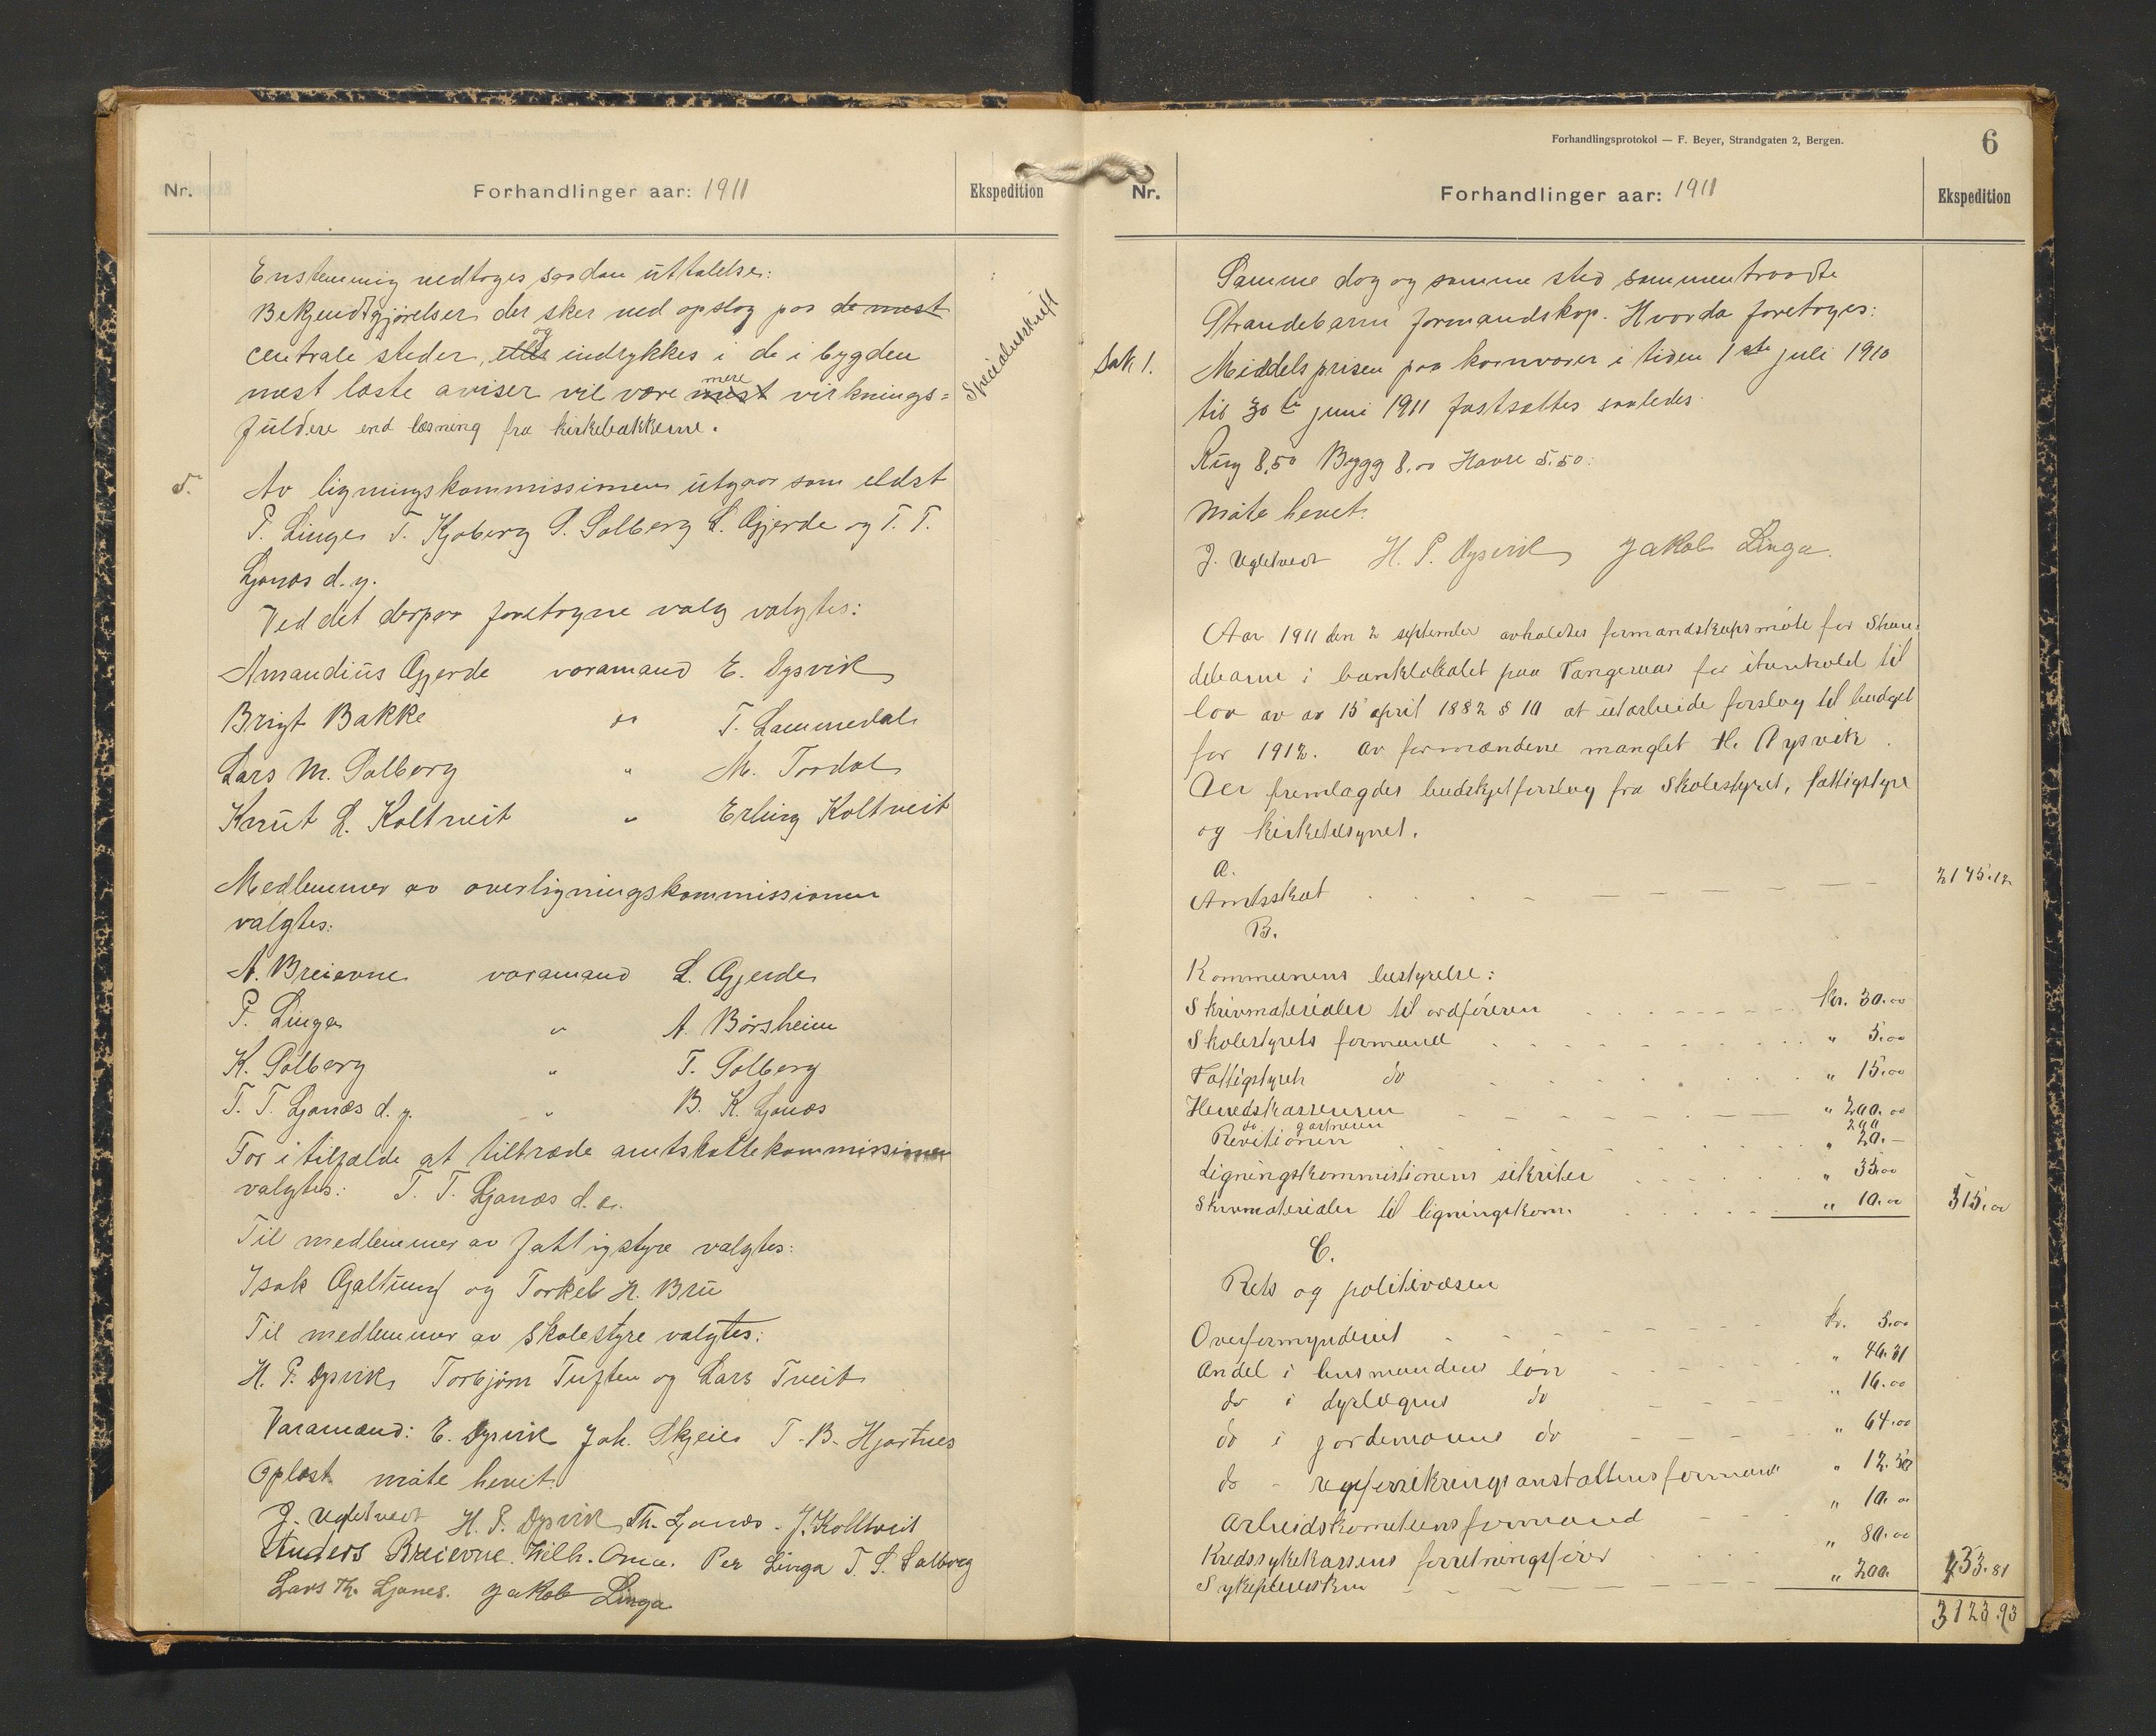 Nr.
Forhandlinger aar: 1911
Ekspedition
Enstemmig vedtoges saadan uttalelse:
Bekjendtgjørelser der sker ved opslag paa de mest
centrale steder, eller og indrykkes i de i bygden
mest læste aviser vil være mest mere virknings=
fuldere end læsning fra kirkebakkerne.
Specialutskrift
5.
Av ligningskommissionen utgaar som eldst
P. Linge T. Kjoberg P. Solberg L. Gjerde og T. T.
Ljonæs d. y.
Ved det derpaa foretagne valg valgtes:
Amandius Gjerde varamand E. Dysvik
Brigt Bakke do T. Lammedal
Lars M. Solberg " M. Tordal
Knut L. Koltveit " Erling Koltveit
Medlemmer av overligningskommissionen
valgtes:
A. Breievne varamand L. Gjerde
P. Linga " A. Børsheim
K. Solberg " T. Solberg
T. T. Ljonæs d. y. " B. K. Ljonæs
For i tilfælde at tiltræde amtskattekommissionen
valgtes: T. T. Ljonæs d. æ.
Til medlemmer av fattigstyre valgtes:
Isak Gjaltung og Torkel H. Bru
Til medlemmer av skolestyre valgtes:
H. P. Dysvik, Torbjørn Tuften og Lars Tveit
Varamænd: E. Dysvik Joh. Skjeie T. B. Hjartnes
Oplæst møte hevet.
J. Ugletvedt H. P. Dysvik Th. Ljonæs. J. Koltveit
Anders Breievne. Vilh. Oma. Per Linga T. S. Solberg
Lars Th. Ljones. Jakob Linga
Forhandlingsprotokol — F. Beyer, Strandgaten 2, Bergen.
6
Nr.
Forhandlinger aar: 1911
Ekspedition
Samme dag og samme sted sammentraadte
Strandebarm formandskap. Hvorda foretoges:
Sak 1.
Middelsprisen paa kornvarer i tiden 1ste juli 1910
til 30te juni 1911 fastsættes saaledes
Rug 8,50 Bygg 8,00 Havre 5.50.
Møte hevet.
J. Ugletvedt H. P. Dysvik Jakob Linga.
Aar 1911 den 2 september avholdtes formandskapsmøte for Stran-
debarm i banklokalet paa Tangeraas for i henhold til
lov av av 15 april 1882 § 10 at utarbeide forslag til budget
for 1912. Av formændene manglet H. Dysvik.
Der fremlagdes budskjetforslag fra Skolestyret, fattigstyre
og kirketilsynet.
A.
Amtsskat 2175.12
B.
Kommunens bestyrelse:
Skrivmaterialer til ordføreren kr. 30.00
Skolestyrets formand " 5.00
Fattigstyrets do " 15.00
Herredskassereren " 200.00
do gartneren 200
Revisionen " 20.—
Ligningskommissionens sekritær " 35.00
Skrivmaterialer til ligningskom. " 10.00 515.00
C.
Rets og politivæsen
Overformynderiet kr. 5.00
Andel i lensmandens løn " 46.31
do i dyrlægens do " 16.00
do i jordemorens do " 64.00
do - rugforsikringsanstaltens formand " 12.50
Arbeidskomiteens formand " 10.00
Kredssykekassens forretningsfører " 80.00
Sykepleiersken " 200. 433.81
3123.93